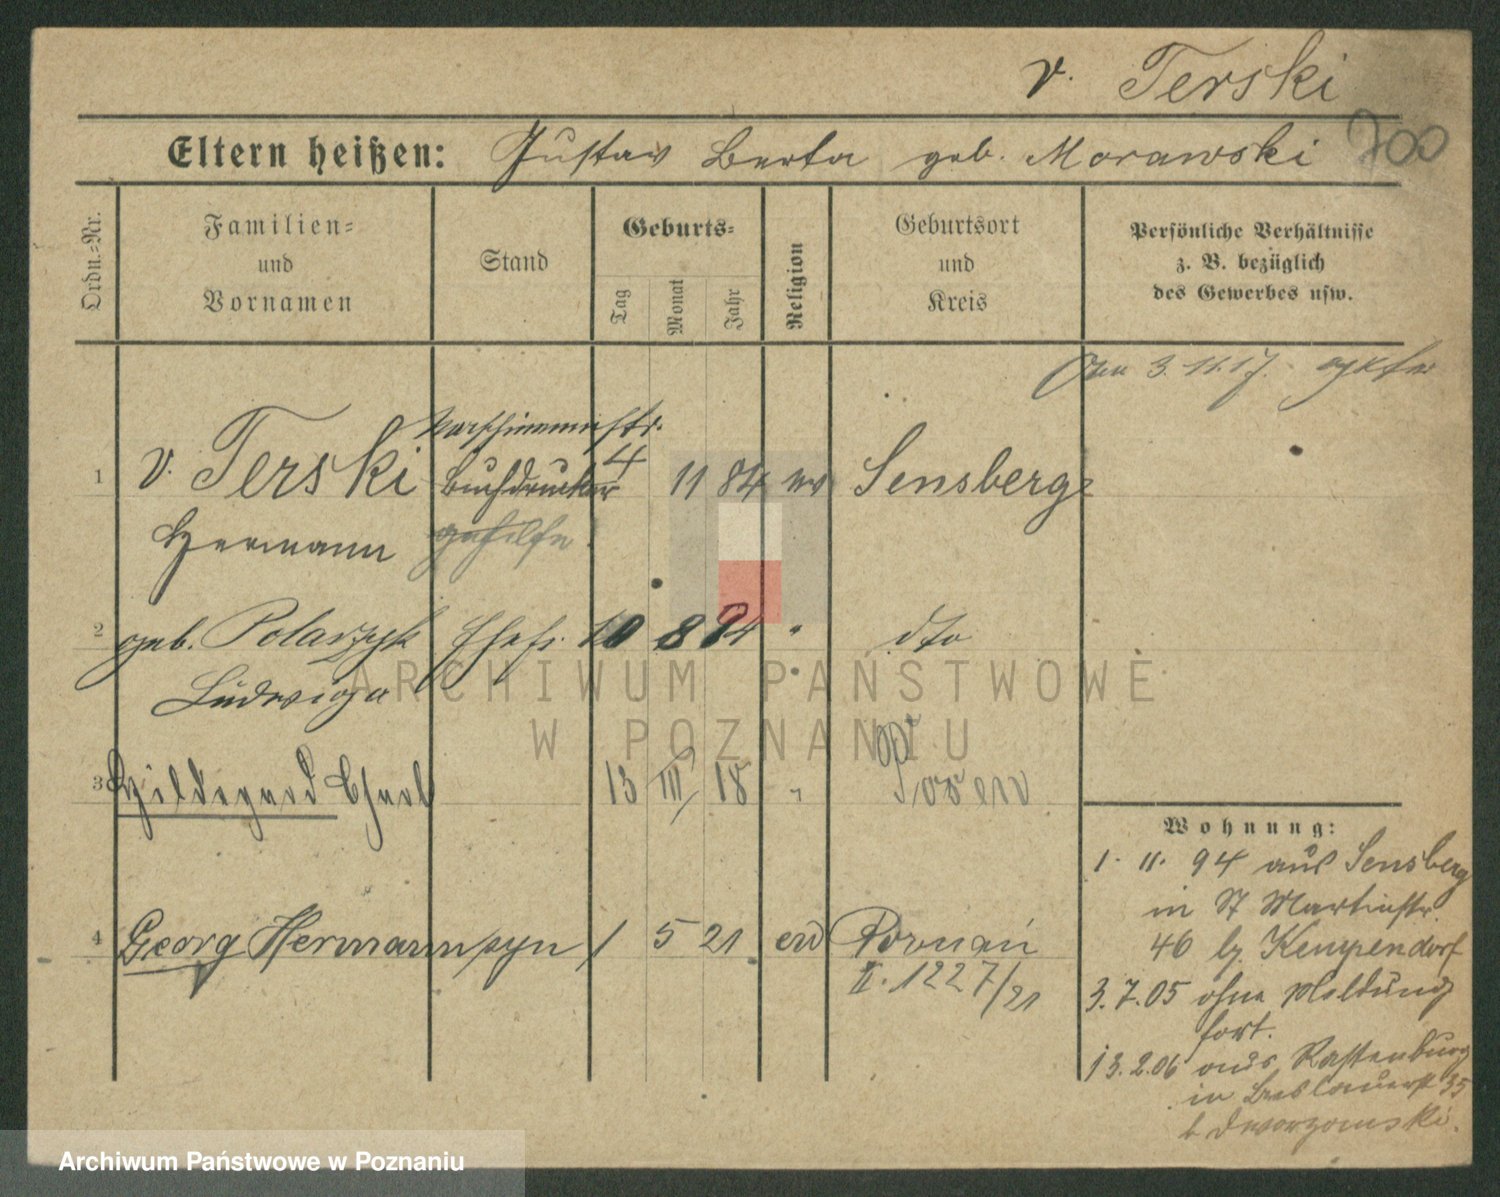 v. Terski
Eltern heißen: Gustav Berta geb. Morawski
700
Ordn.-Nr.
Familien-
und
Vornamen
Stand
Geburts-
Tag
Monat
Jahr
Religion
Geburtsort
und
Kreis
Persönliche Verhältnisse
z. B. bezüglich
des Gewerbes usw.
3. 11. 17.
Maschinenmstr.
1 v. Terski Buchdrucker 4 11 84 ev Sensberg
Hermann gehilfe
2 geb. Polaszyk Ehefr. 10 8 84 " dto
Ludwiga
3 Hildegard 13 III 18 " Posen
4 Georg Hermann syn 1 5 21 ew Poznań
II. 1227/21
Wohnung:
1. 11. 94 aus Sensberg
in St Martinstr.
46 b. Kempendorf
3. 7. 05 ohne Meldung
fort.
13. 2. 06 aus Rastenburg
in Breslauerst 35
b Dworzanski.
ARCHIWUM PAŃSTWOWE
W POZNANIU
Archiwum Państwowe w Poznaniu